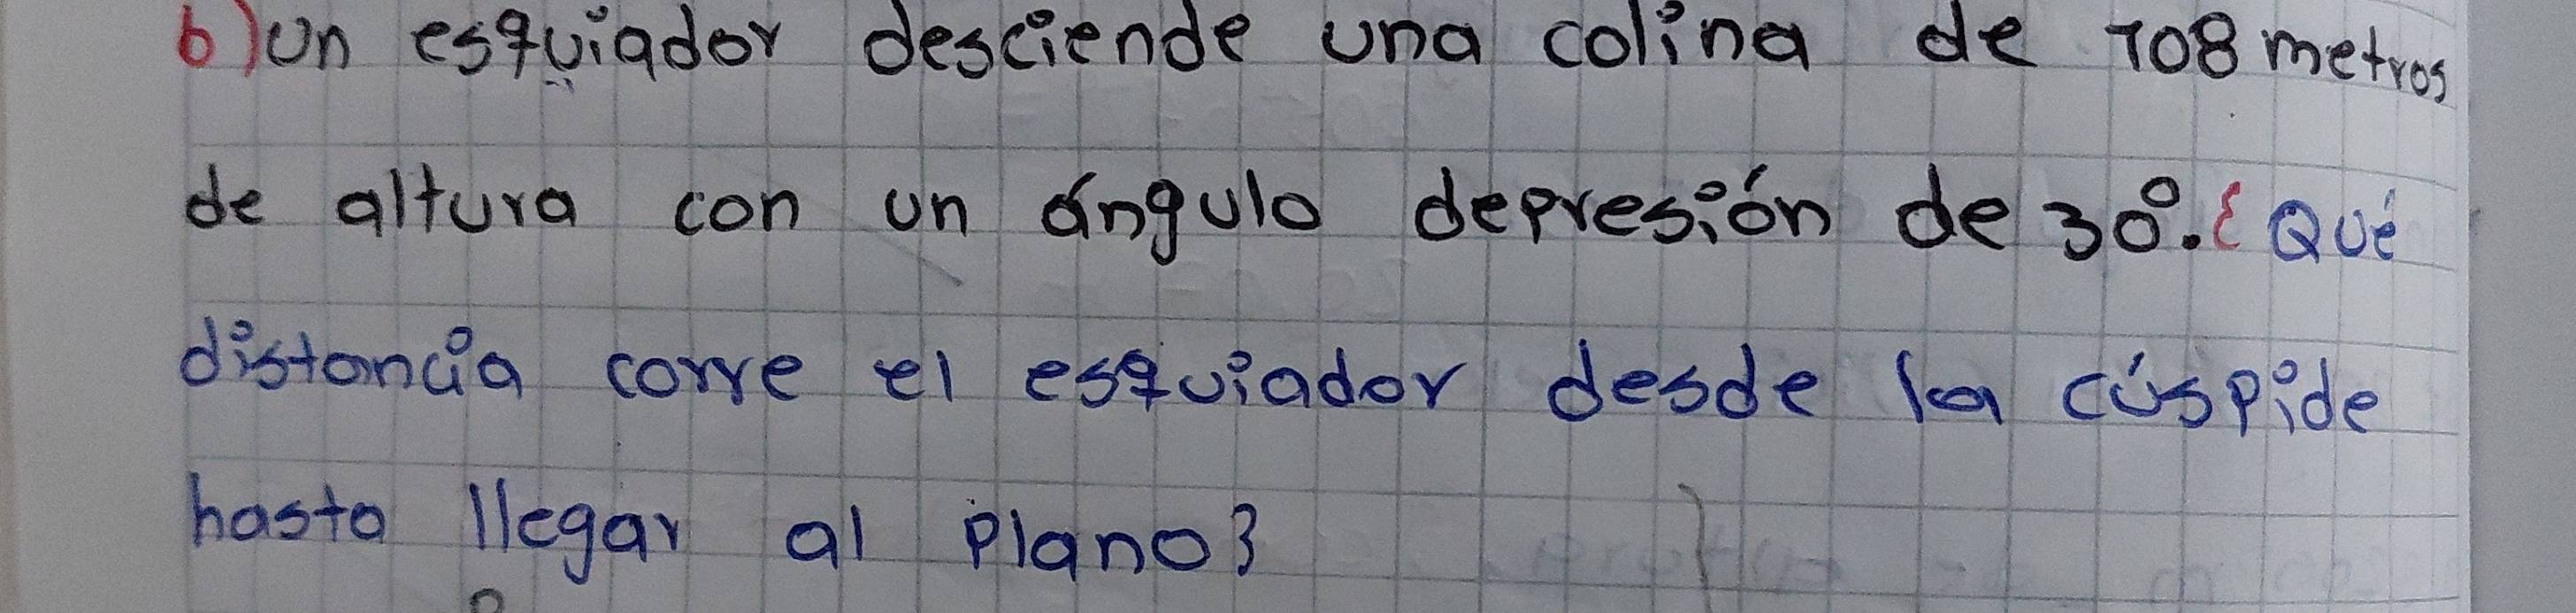 b) Un esquiador desciende una colina de 108 metros
de altura con un ángulo depresión de 30°. ¿Qué
distancia corre el esquiador desde la cúspide
hasta llegar al plano?